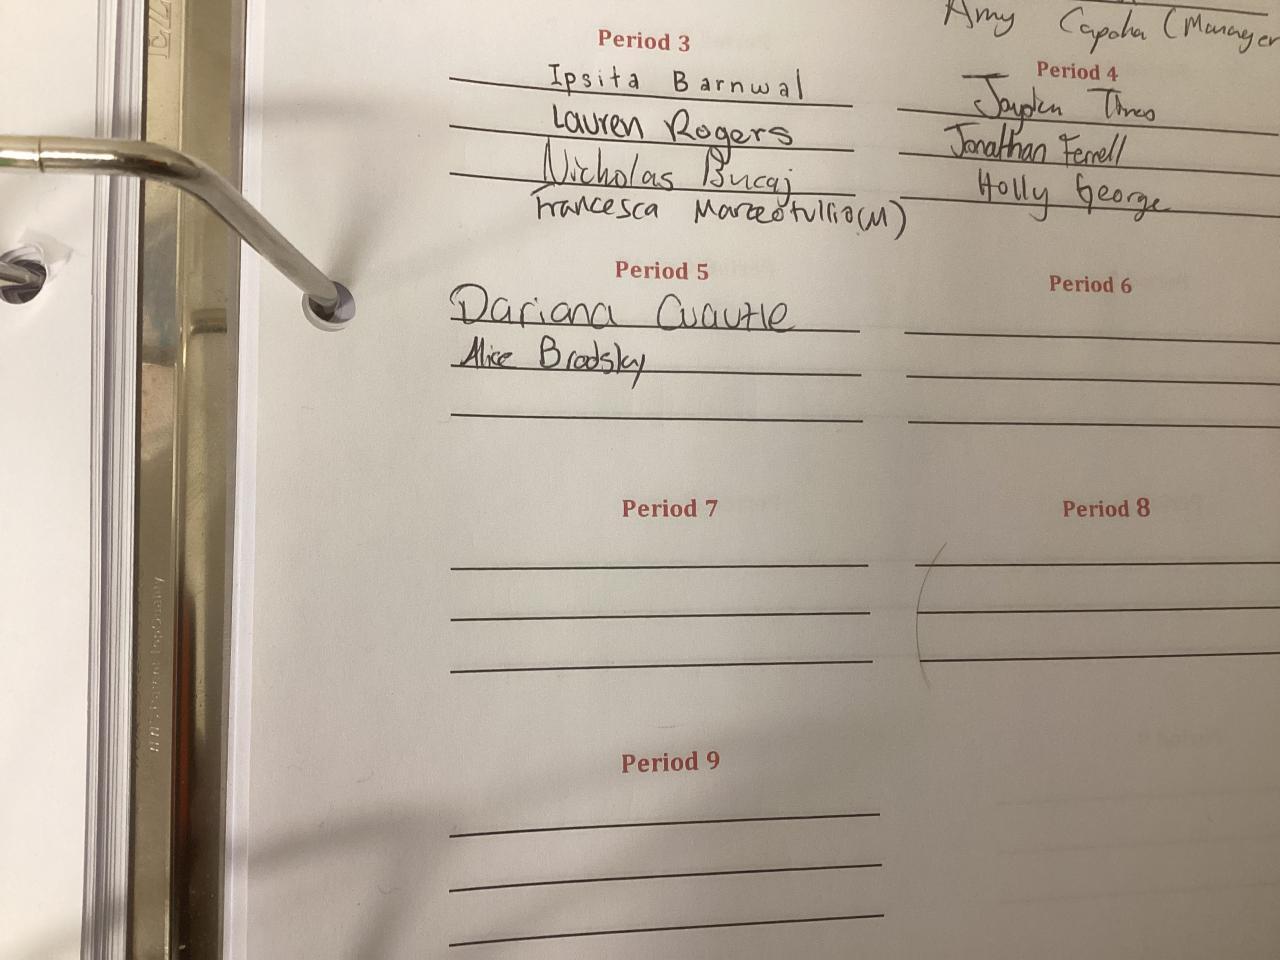 Amy Capoha (Manager
Period 3
Ipsita Barnwal
Lauren Rogers
Nicholas Bucaj
Francesca Marceotullio(M)
Period 4
Jayden
Jonathan Ferrell
Holly George
Period 5
Dariana Cuautle
Alice Brodsky
Period 6
Period 7
Period 8
Period 9